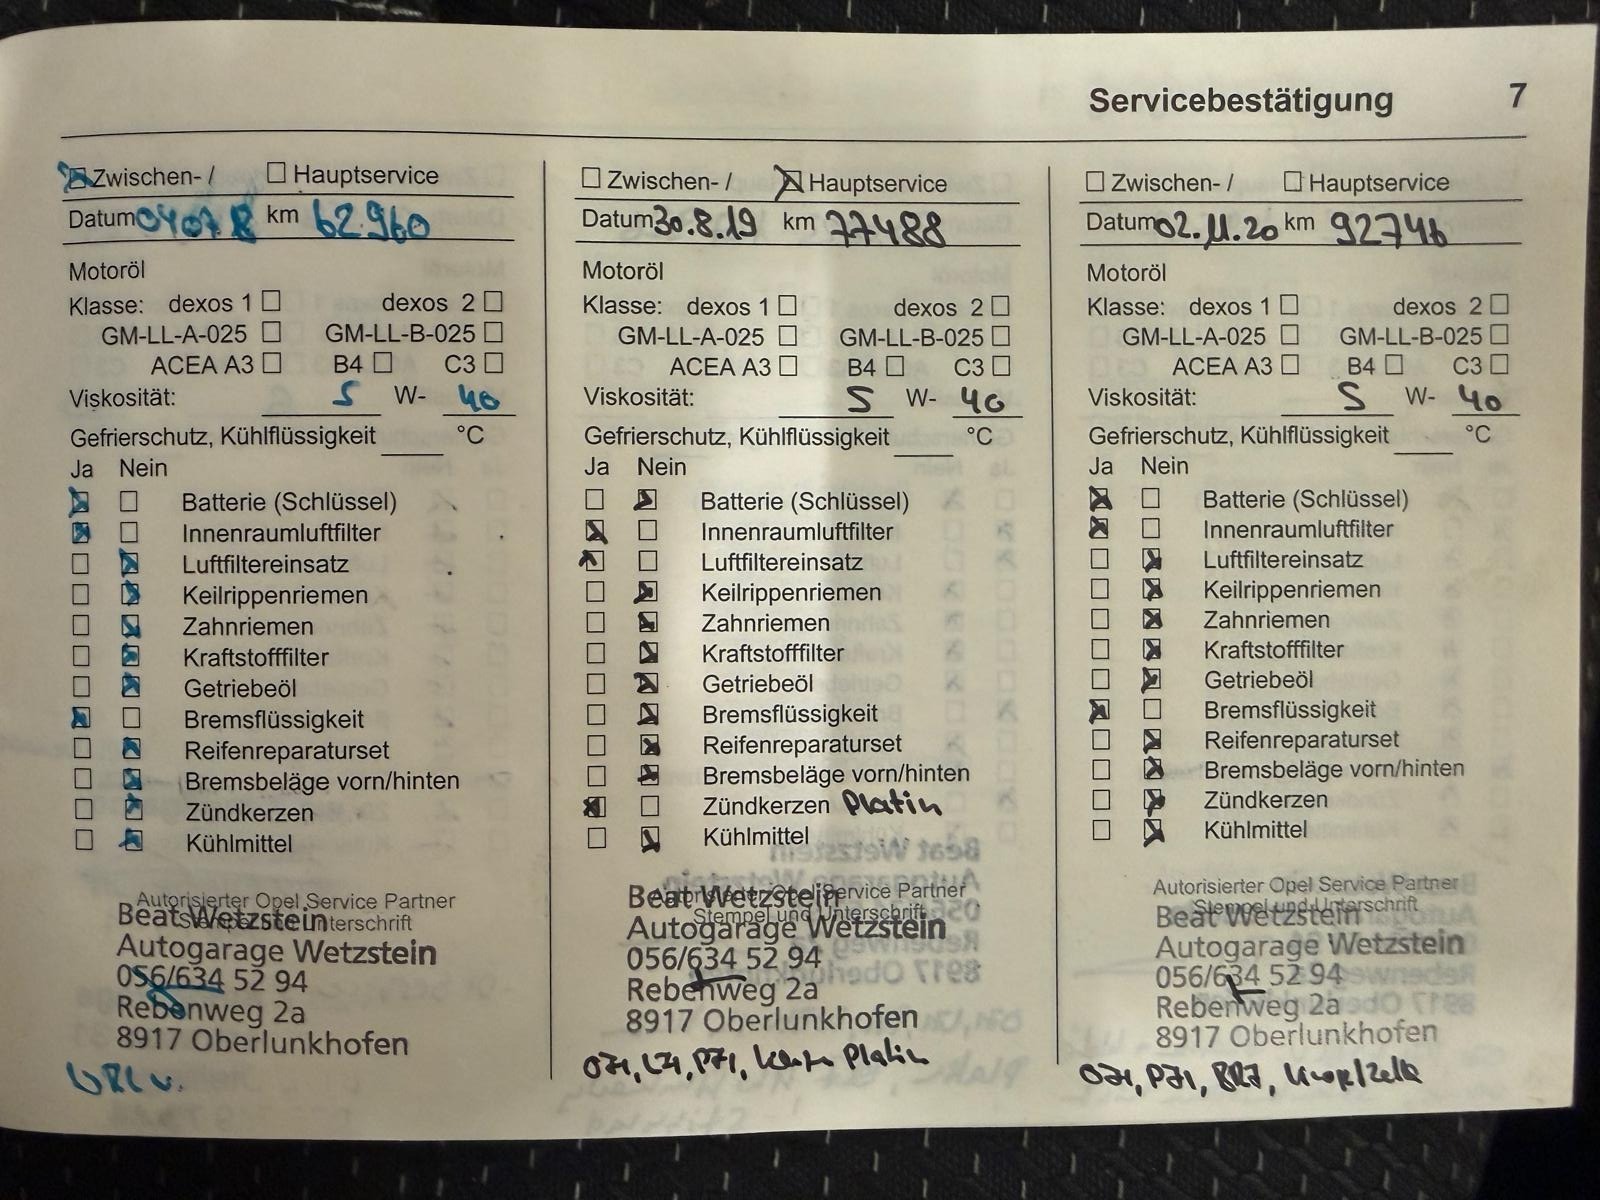 Servicebestätigung 7
Zwischen- / Hauptservice
Datum 04 07 18 km 62.960
Motoröl
Klasse: dexos 1 dexos 2
GM-LL-A-025 GM-LL-B-025
ACEA A3 B4 C3
Viskosität: 5 W- 40
Gefrierschutz, Kühlflüssigkeit °C
Ja Nein
Batterie (Schlüssel)
Innenraumluftfilter
Luftfiltereinsatz
Keilrippenriemen
Zahnriemen
Kraftstofffilter
Getriebeöl
Bremsflüssigkeit
Reifenreparaturset
Bremsbeläge vorn/hinten
Zündkerzen
Kühlmittel
Autorisierter Opel Service Partner
Stempel und Unterschrift
Beat Wetzstein
Autogarage Wetzstein
056/634 52 94
Rebenweg 2a
8917 Oberlunkhofen
Zwischen- / Hauptservice
Datum 30.8.19 km 77488
Motoröl
Klasse: dexos 1 dexos 2
GM-LL-A-025 GM-LL-B-025
ACEA A3 B4 C3
Viskosität: 5 W- 40
Gefrierschutz, Kühlflüssigkeit °C
Ja Nein
Batterie (Schlüssel)
Innenraumluftfilter
Luftfiltereinsatz
Keilrippenriemen
Zahnriemen
Kraftstofffilter
Getriebeöl
Bremsflüssigkeit
Reifenreparaturset
Bremsbeläge vorn/hinten
Zündkerzen Platin
Kühlmittel
Autorisierter Opel Service Partner
Stempel und Unterschrift
Beat Wetzstein
Autogarage Wetzstein
056/634 52 94
Rebenweg 2a
8917 Oberlunkhofen
Platin
Zwischen- / Hauptservice
Datum 02.11.20 km 92746
Motoröl
Klasse: dexos 1 dexos 2
GM-LL-A-025 GM-LL-B-025
ACEA A3 B4 C3
Viskosität: 5 W- 40
Gefrierschutz, Kühlflüssigkeit °C
Ja Nein
Batterie (Schlüssel)
Innenraumluftfilter
Luftfiltereinsatz
Keilrippenriemen
Zahnriemen
Kraftstofffilter
Getriebeöl
Bremsflüssigkeit
Reifenreparaturset
Bremsbeläge vorn/hinten
Zündkerzen
Kühlmittel
Autorisierter Opel Service Partner
Stempel und Unterschrift
Beat Wetzstein
Autogarage Wetzstein
056/634 52 94
Rebenweg 2a
8917 Oberlunkhofen